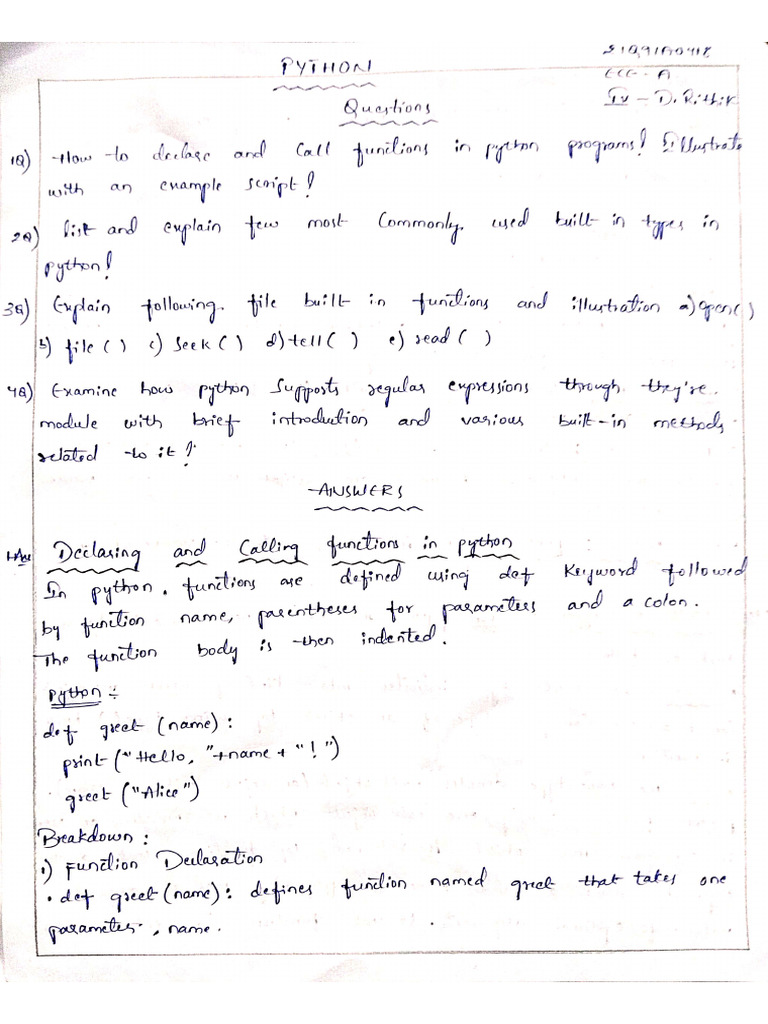 PYTHON
ECE - A
IV - D. Rithik
Questions
1Q) How to declare and call functions in python programs! Illustrate
with an example script!
2Q) list and explain few most commonly used built in types in
python!
3Q) Explain following file built in functions and illustration a) open()
b) file ( ) c) seek ( ) d) tell ( ) e) read ( )
4Q) Examine how python supports regular expressions through they're
module with brief introduction and various built-in methods
related to it!
ANSWERS
1Ans Declaring and Calling functions in python
In python, functions are defined using def keyword followed
by function name, parentheses for parameters and a colon.
The function body is then indented.
python :-
def greet (name) :
print ("Hello, "+name + "!")
greet ("Alice")
Breakdown :
1) Function Declaration
• def greet (name) : defines function named greet that takes one
parameter, name.